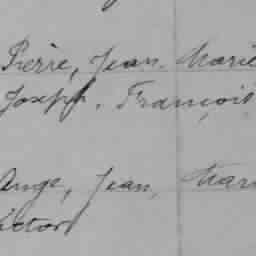 Pierre, Jean, Marie
Joseph, François
Ange, Jean, Mari
ictor